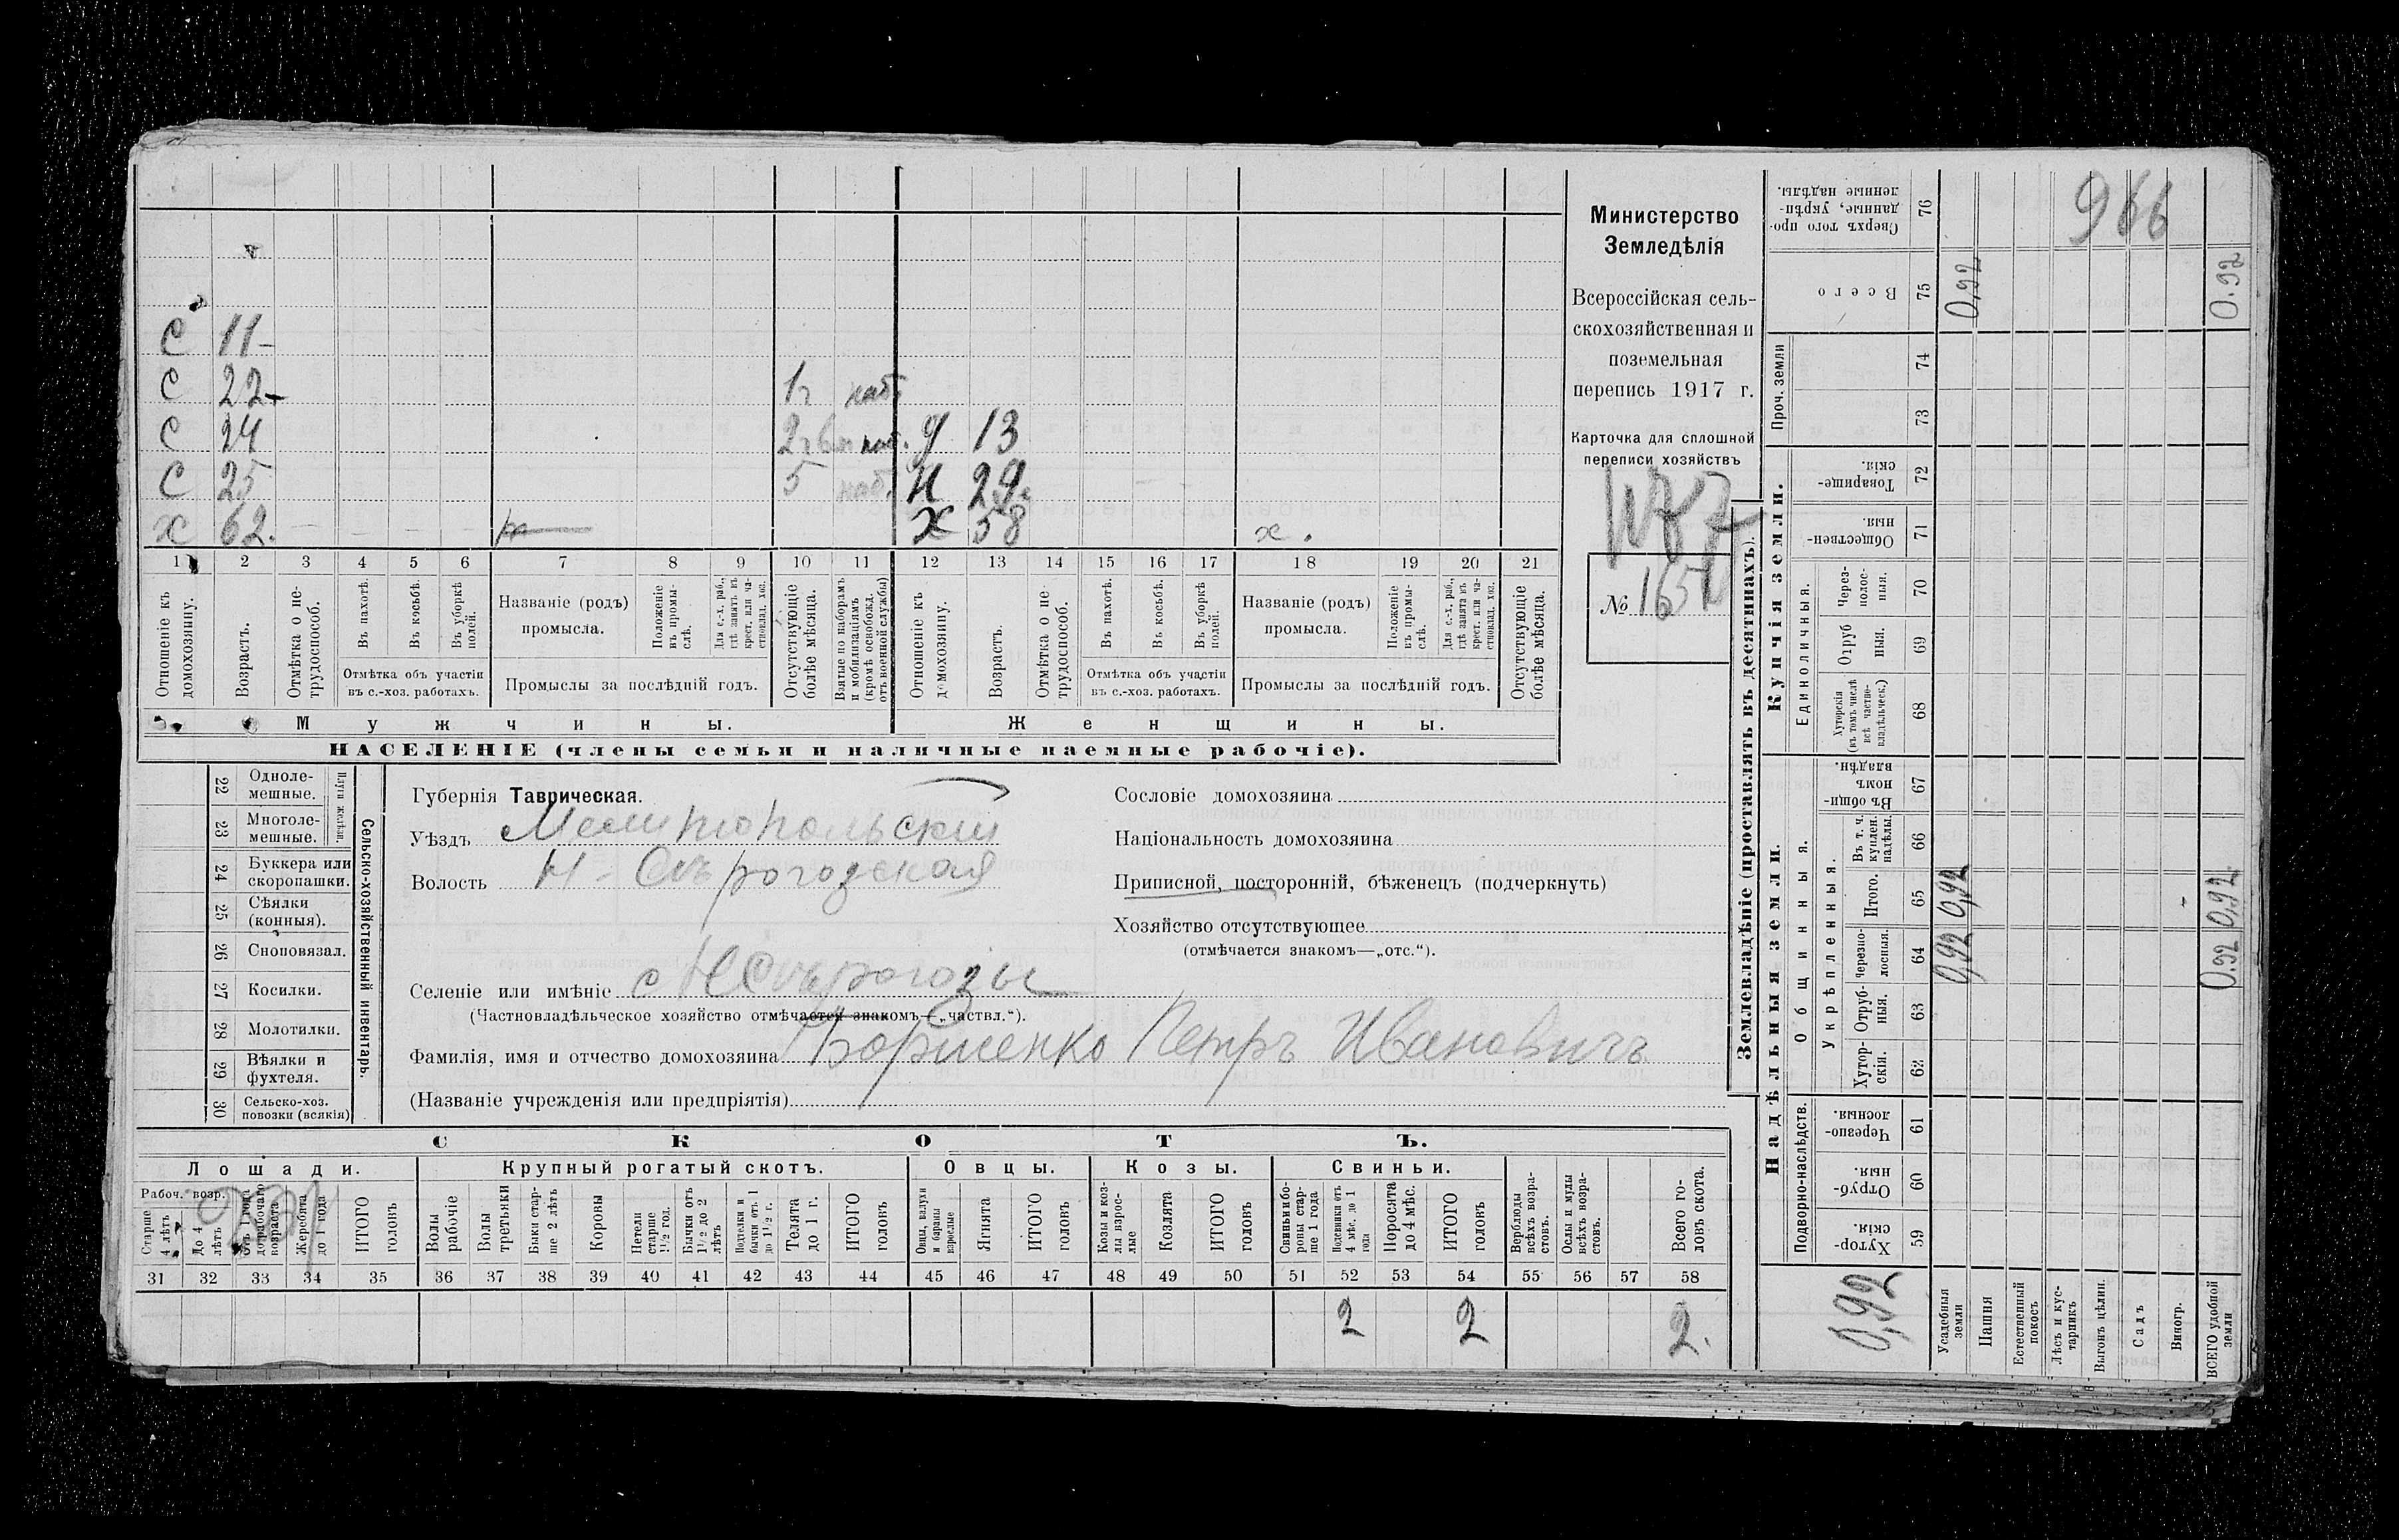 С 11
С 22 1г наб.
С 24 2г 6м наб. д 13
С 25 5 наб. н 29
х 62 х 58 х.
1 2 3 4 5 6 7 8 9 10 11 12 13 14 15 16 17 18 19 20 21
Отношеніе къ домохозяину.
Возрастъ.
Отмѣтка о нетрудоспособ.
Въ пахотѣ.
Въ косьбѣ.
Въ уборкѣ полей.
Отмѣтка объ участіи
въ с.-хоз. работахъ.
Названіе (родъ)
промысла.
Положеніе въ промыслѣ.
Для с.-х. раб., гдѣ занятъ въ крест. или частновлад. хоз.
Промыслы за послѣдній годъ.
Отсутствующіе болѣе мѣсяца.
Взятые по наборамъ и мобилизаціямъ (кромѣ освобожд. отъ военной службы)
Отношеніе къ домохозяину.
Возрастъ.
Отмѣтка о нетрудоспособ.
Въ пахотѣ.
Въ косьбѣ.
Въ уборкѣ полей.
Отмѣтка объ участіи
въ с.-хоз. работахъ.
Названіе (родъ)
промысла.
Положеніе въ промыслѣ.
Для с.-х. раб., гдѣ занята въ крест. или частновлад. хоз.
Промыслы за послѣдній годъ.
Отсутствующіе болѣе мѣсяца.
Мужчины. Женщины.
НАСЕЛЕНІЕ (члены семьи и наличные наемные рабочіе).
Министерство
Земледѣлія
Всероссійская сель-
скохозяйственная и
поземельная
перепись 1917 г.
Карточка для сплошной
переписи хозяйствъ
№ 165
22 Одноле-
мешные.
23 Многоле-
мешные.
Плуги желѣзн.
24 Буккера или
скоропашки.
25 Сѣялки
(конныя).
26 Сноповязал.
27 Косилки.
28 Молотилки.
29 Вѣялки и
фухтеля.
30 Сельско-хоз.
повозки (всякія)
Сельско-хозяйственный инвентарь.
Губернія Таврическая.
Уѣздъ Мелитопольскій
Волость Н-Сѣрогозская
Селеніе или имѣніе с Н Сѣрогозы
(Частновладѣльческое хозяйство отмѣчается знакомъ—„частвл.“).
Фамилія, имя и отчество домохозяина Борисенко Петръ Ивановичъ
(Названіе учрежденія или предпріятія)
Сословіе домохозяина
Національность домохозяина
Приписной, посторонній, бѣженецъ (подчеркнуть)
Хозяйство отсутствующее
(отмѣчается знакомъ—„отс.“).
СКОТЪ.
Лошади. Крупный рогатый скотъ. Овцы. Козы. Свиньи.
Рабоч. возр.
Старше 4 лѣтъ
До 4 лѣтъ
Отъ 1 года до рабочаго возраста
Жеребята до 1 года
ИТОГО головъ
Волы рабочіе
Волы третьяки
Быки старше 2 лѣтъ
Коровы
Нетели старше 1½ год.
Бычки отъ 1½ до 2 лѣтъ
Подтелки и бычки отъ 1 до 1½ г.
Телята до 1 г.
ИТОГО головъ
Овцы, валухи и бараны взрослые
Ягнята
ИТОГО головъ
Козы и козлы взрослые
Козлята
ИТОГО головъ
Свиньи и боровы старше 1 года
Подсвинки отъ 4 мѣс. до 1 года
Поросята до 4 мѣс.
ИТОГО головъ
Верблюды всѣхъ возрастовъ.
Ослы и мулы всѣхъ возрастовъ.
Всего головъ скота.
31 32 33 34 35 36 37 38 39 40 41 42 43 44 45 46 47 48 49 50 51 52 53 54 55 56 57 58
2 2 2.
Землевладѣніе (проставлять въ десятинахъ).
Надѣльныя земли. Купчія земли.
Подворно-наслѣдств.
Общинныя.
Укрѣпленныя.
Единоличныя.
Проч. земли
Хуторскія. 59
Отрубныя. 60
Черезполосныя. 61
Хуторскія. 62
Отрубныя. 63
Черезполосныя. 64
Итого. 65
Въ т. ч. куплен. надѣлы. 66
Въ общинномъ владѣн. 67
Хуторскія (въ томъ числѣ всѣ частновладѣльческ.) 68
Отрубныя. 69
Черезполосныя. 70
Общественныя. 71
Товарищескія. 72
73
74
Всего 75
Сверхъ того проданные, укрѣпленные надѣлы. 76
966
0,92
Усадебныя земли 0,92 0,92 0,92
Пашня
Естественный покосъ
Лѣсъ и кустарникъ
Выгонъ цѣлин.
Садъ
Виногр.
ВСЕГО удобной земли 0.92 0,92 0.92